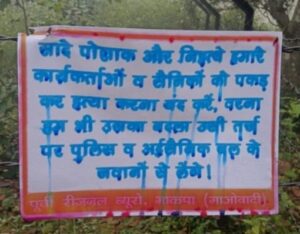 सादे पोशाक और निहत्थे हमारे
कार्यकर्ताओं व सैनिकों को पकड़
कर हत्या करना बंद करें, वरना
हम भी उसका बदला उसी तर्ज
पर पुलिस व अर्द्धसैनिक बल के
जवानों से लेंगे।
पूर्वी रीजनल ब्यूरो, भाकपा (माओवादी)